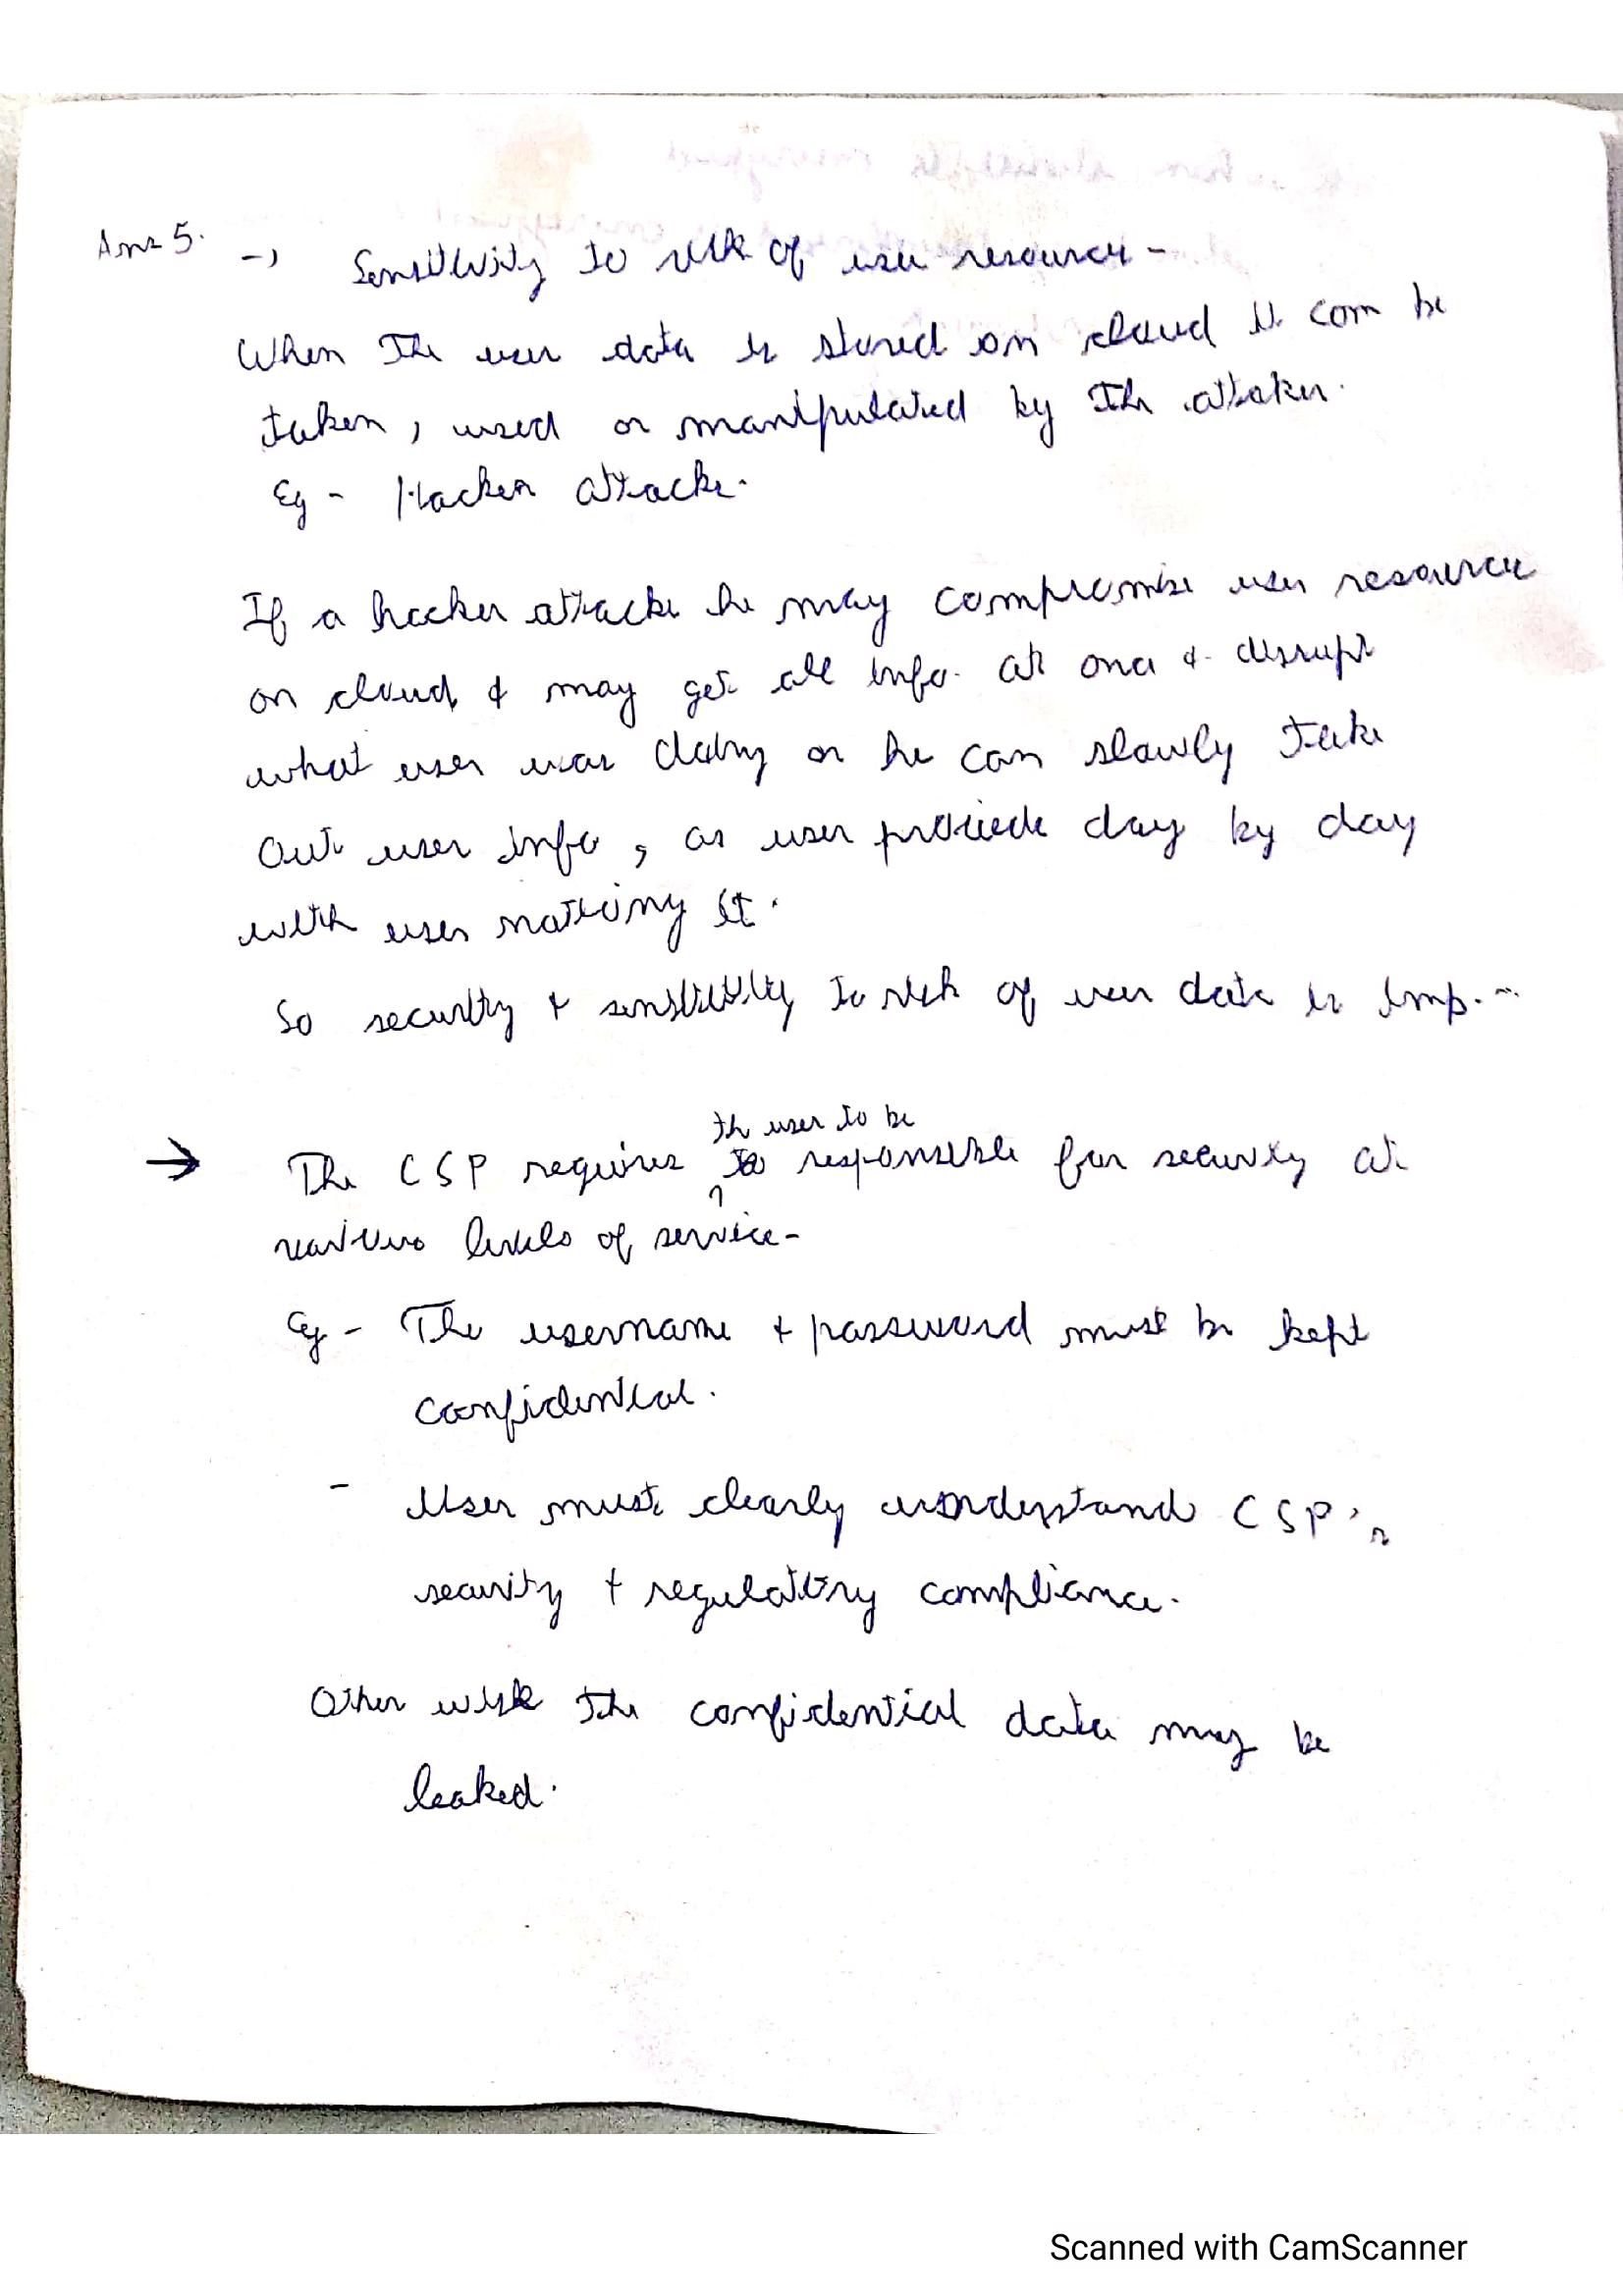 Ans 5. → Sensitivity to risk of user resource -
When the user data is stored on cloud it can be
taken, used or manipulated by the attaker.
Eg - Hacker attacks.
If a hacker attacks he may compromise user resource
on cloud & may get all info. at once & disrupt
what user was doing or he can slowly take
out user info, as user proceede day by day
with user noticing it.
So security & sensitivity to risk of user data is imp.
the user to be
→ The CSP requires responsible for security at
various levels of service-
Eg - The username & password must be kept
confidential.
- User must clearly understand CSP's
security & regulatory compliance.
Other wise the confidential data may be
leaked.
Scanned with CamScanner